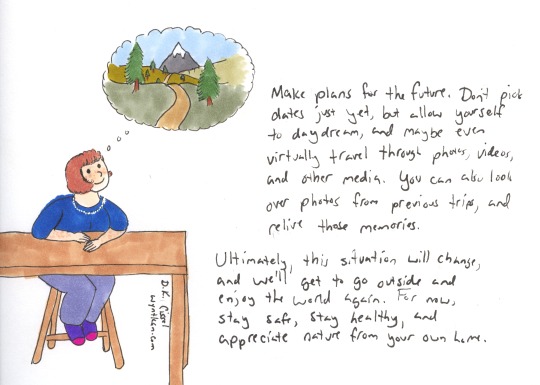 Make plans for the future. Don't pick
dates just yet, but allow yourself
to daydream, and maybe even
virtually travel through photos, videos,
and other media. You can also look
over photos from previous trips, and
relive those memories.
Ultimately, this situation will change,
and we'll get to go outside and
enjoy the world again. For now,
stay safe, stay healthy, and
appreciate nature from your own home.
D.K.